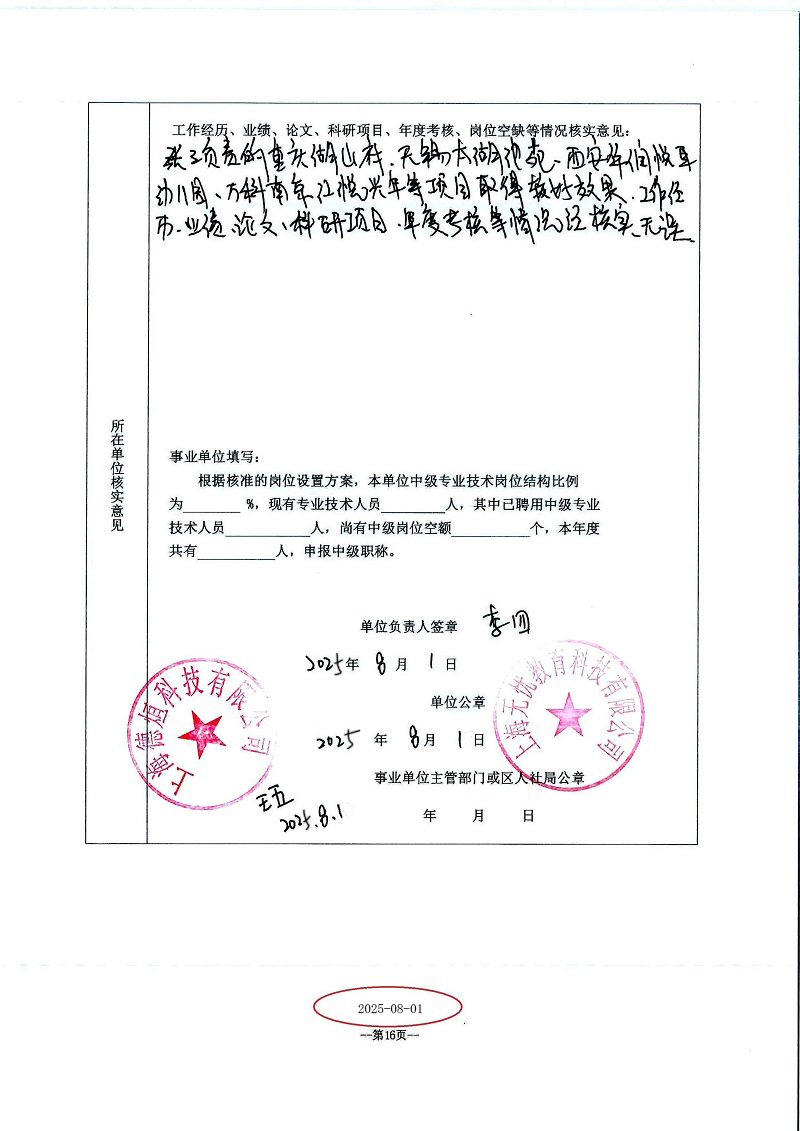 工作经历、业绩、论文、科研项目、年度考核、岗位空缺等情况核实意见：
张三负责的重庆湖山村、无锡太湖 苑、西安华 悦
幼儿园、万科南京江悦兴年等项目取得较好效果、工作经
历、业绩、论文、科研项目、年度考核等情况经核实、无误
所在单位核实意见
事业单位填写：
根据核准的岗位设置方案，本单位中级专业技术岗位结构比例
为________ %，现有专业技术人员_________人，其中已聘用中级专业
技术人员____________人，尚有中级岗位空额___________个，本年度
共有___________人，申报中级职称。
单位负责人签章 李四
2025年 8 月 1 日
单位公章
2025 年 8月 1 日
事业单位主管部门或区人社局公章
年 月 日
上海德垣科技有限公司
上海无忧教育科技有限公司
王五
2025.8.1
2025-08-01
—第16页—